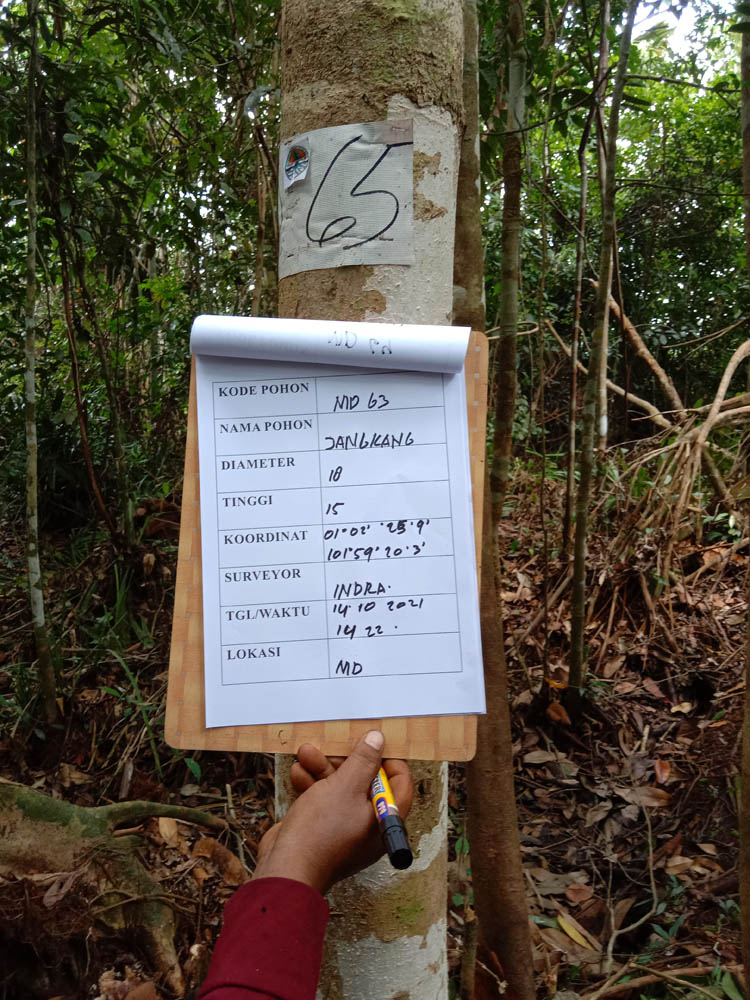 65
KODE POHON MD 63
NAMA POHON JANGKANG
DIAMETER 18
TINGGI 15
KOORDINAT 01°02' '25'9'
101°59'20'3'
SURVEYOR INDRA.
TGL/WAKTU 14.10 2021
14 22.
LOKASI MD